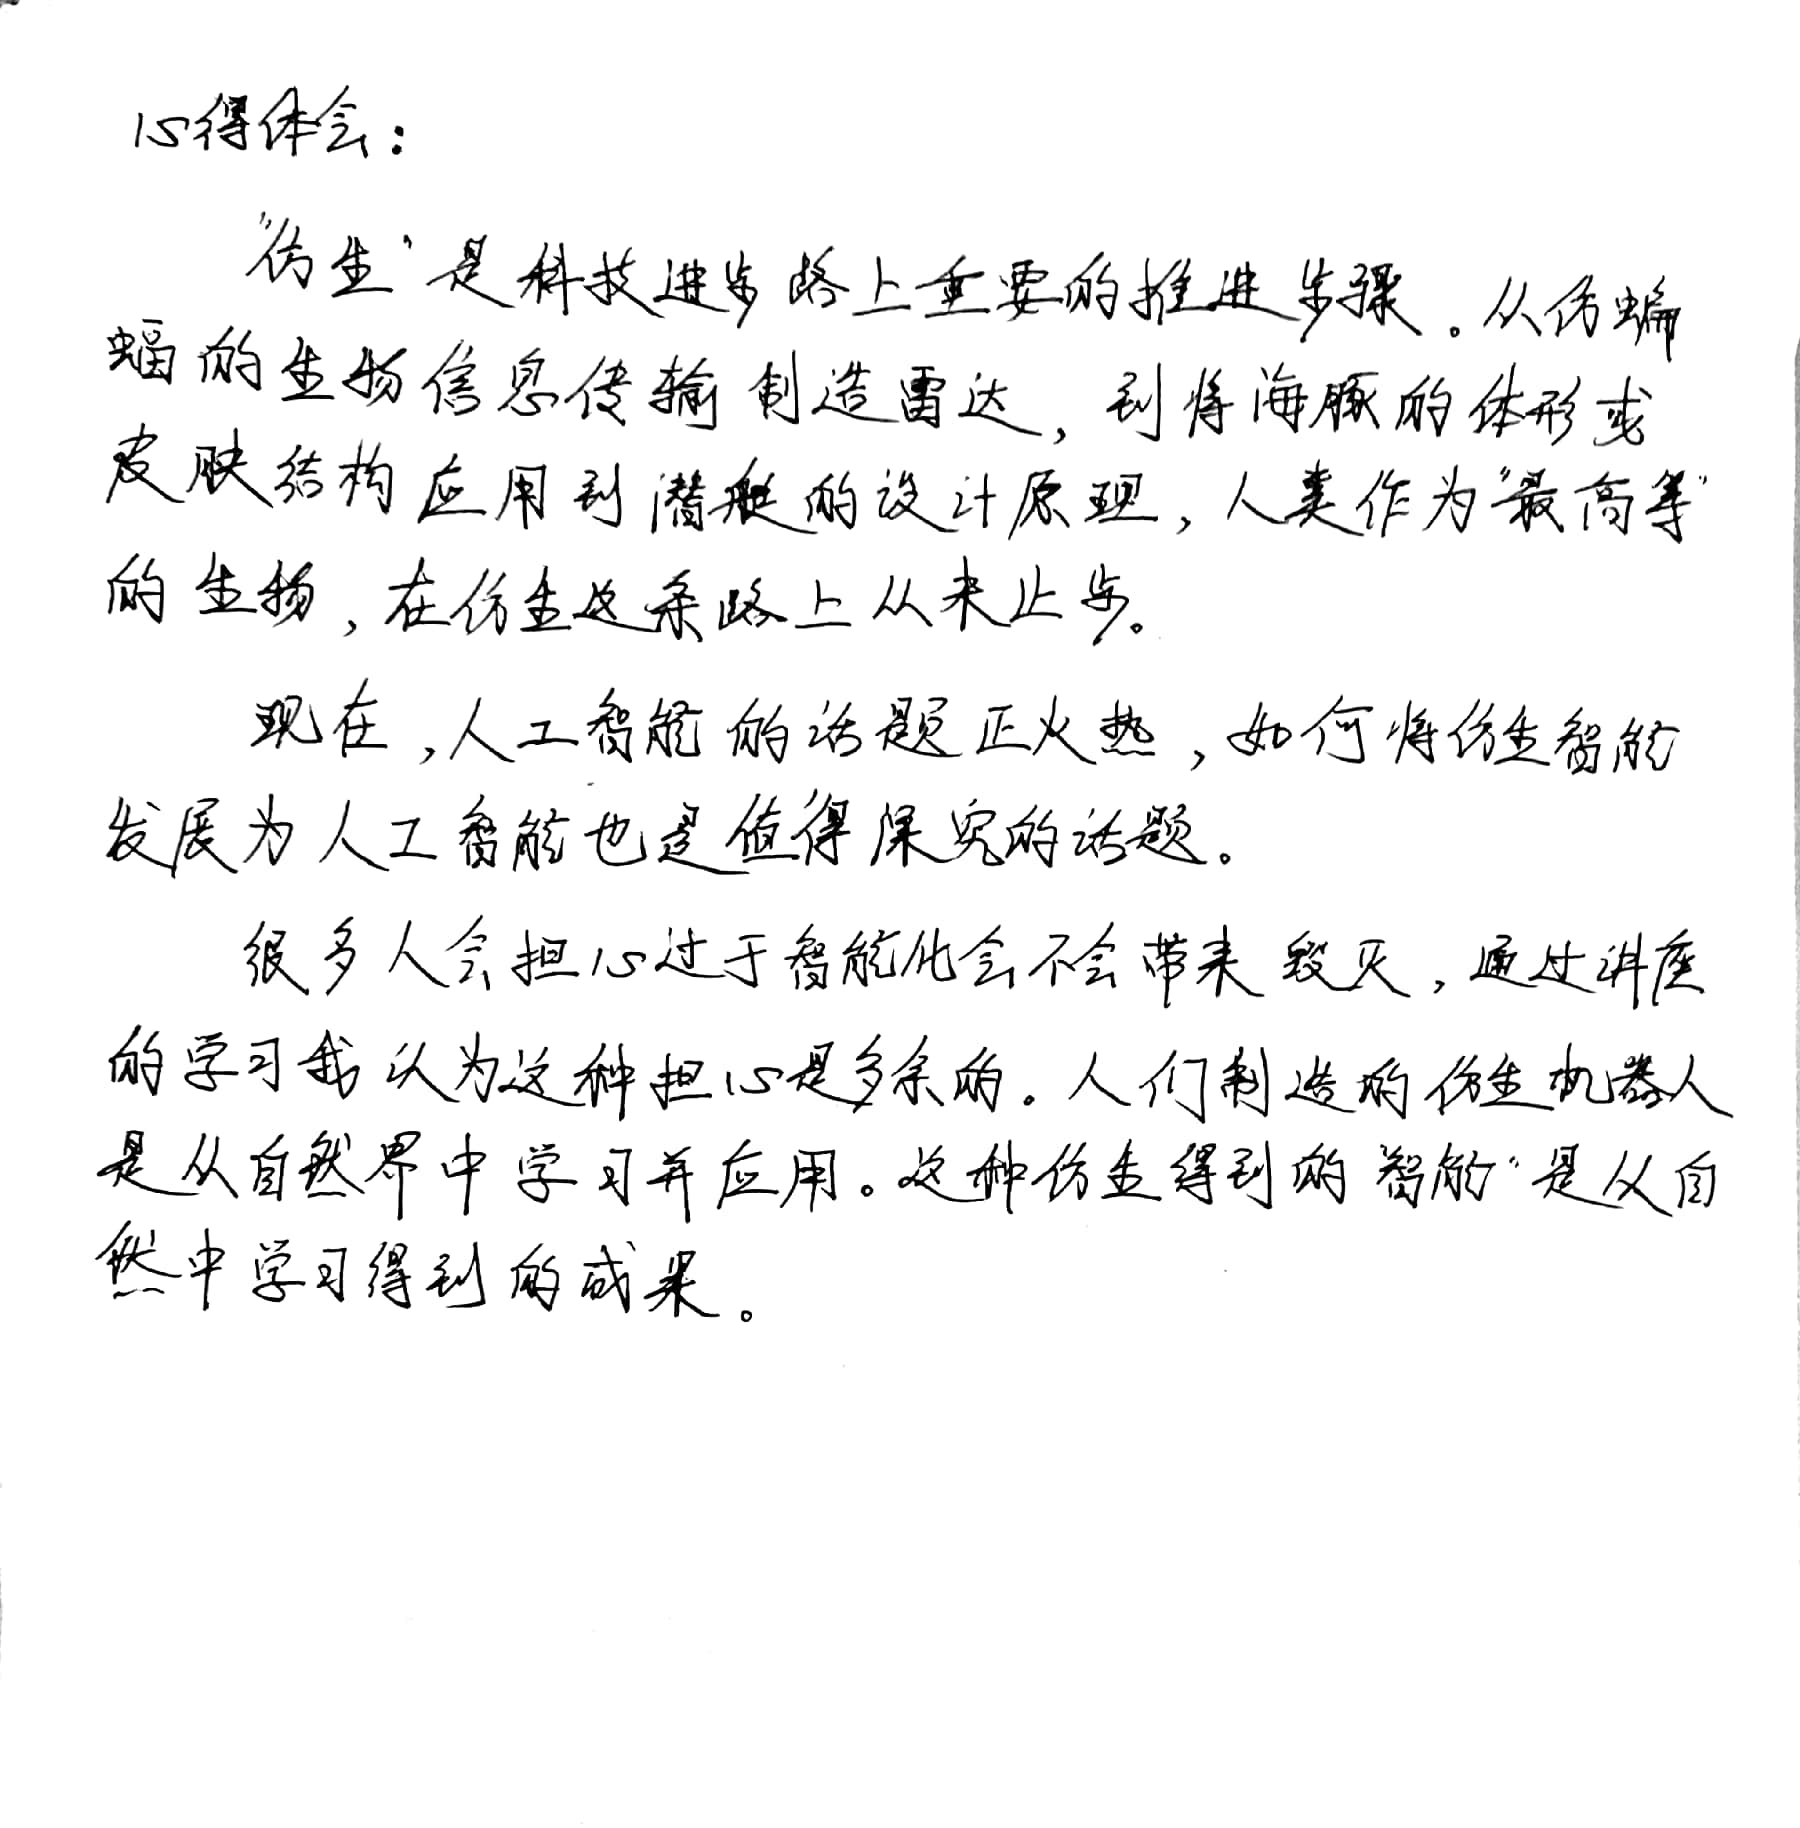 心得体会：
“仿生”是科技进步路上重要的推进步骤。从仿蝙
蝠的生物信息传输制造雷达，到将海豚的体形或
皮肤结构应用到潜艇的设计原理，人类作为“最高等”
的生物，在仿生这条路上从未止步。
现在，人工智能的话题正火热，如何将仿生智能
发展为人工智能也是值得深究的话题。
很多人会担心过于智能化会不会带来毁灭，通过讲座
的学习我认为这种担心是多余的。人们制造的仿生机器人
是从自然界中学习并应用。这种仿生得到的“智能”是从自
然中学习得到的成果。